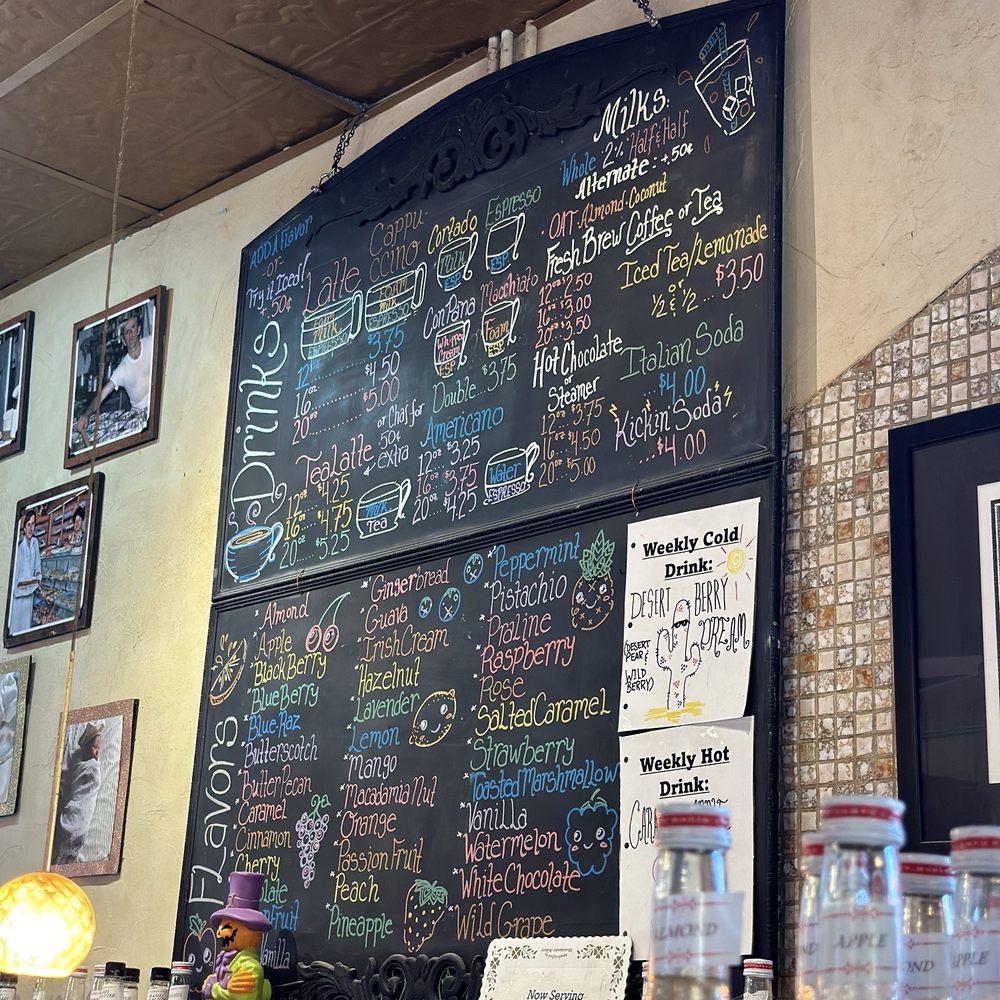 ADD A Flavor
-OR-
Try it Iced!
+.50¢
Drinks
Latte
FOAM
MILK
ESPRESSO
Cappu
ccino
FOAM
MILK
ESPRESSO
12oz ........ $3.75
16oz ........ $4.50
20oz ........ $5.00
Cortado
Milk
ESP
Espresso
ESP
ConPana
Whipped
Cream
ESP
Macchiato
Foam
ESP
Double..$3.75
Tea Latte
or Chai for
50¢
extra
12oz .... $4.25
16oz .... $4.75
20oz .... $5.25
Milk
Tea
Americano
12oz $3.25
16oz $3.75
20oz $4.25
Water
ESPRESSO
Milks:
Whole 2% Half & Half
Alternate: +.50¢
• OAT • Almond • Coconut
Fresh Brew Coffee or Tea
12oz $2.50
16oz $3.00
20oz $3.50
Iced Tea/Lemonade
or
½ & ½ ... $3.50
Hot Chocolate
or
Steamer
12oz $3.75
16oz $4.50
20oz $5.00
Italian Soda
$4.00
Kickin' Soda
$4.00
Flavors
*Almond
*Apple
*BlackBerry
*BlueBerry
*Blue-Raz
*Butterscotch
*Butter Pecan
*Caramel
*Cinnamon
*Cherry
*Gingerbread
*Guava
*Irish Cream
*Hazelnut
*Lavender
*Lemon
*Mango
*Macadamia Nut
*Orange
*Passion Fruit
*Peach
*Pineapple
*Peppermint
*Pistachio
*Praline
*Raspberry
*Rose
*Salted Caramel
*Strawberry
*Toasted Marshmallow
*Vanilla
*Watermelon
*White Chocolate
*Wild Grape
Vanilla
Weekly Cold
Drink:
DESERT BERRY
DREAM
(DESERT
PEAR &
WILD
BERRY)
Weekly Hot
Drink:
Now Serving
ALMOND
APPLE
OND
APPLE